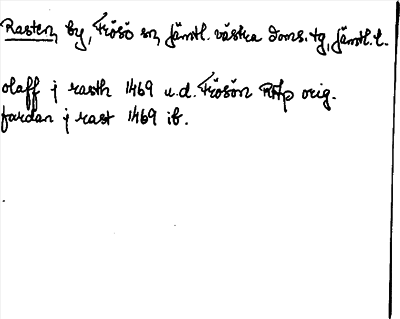 Rasten, by, Frösö sn, Jämtl. västra doms. tg, Jämtl. l.
olaff j rasth 1469 u.d. Frösön RAp orig.
fardan j rast 1469 ib.